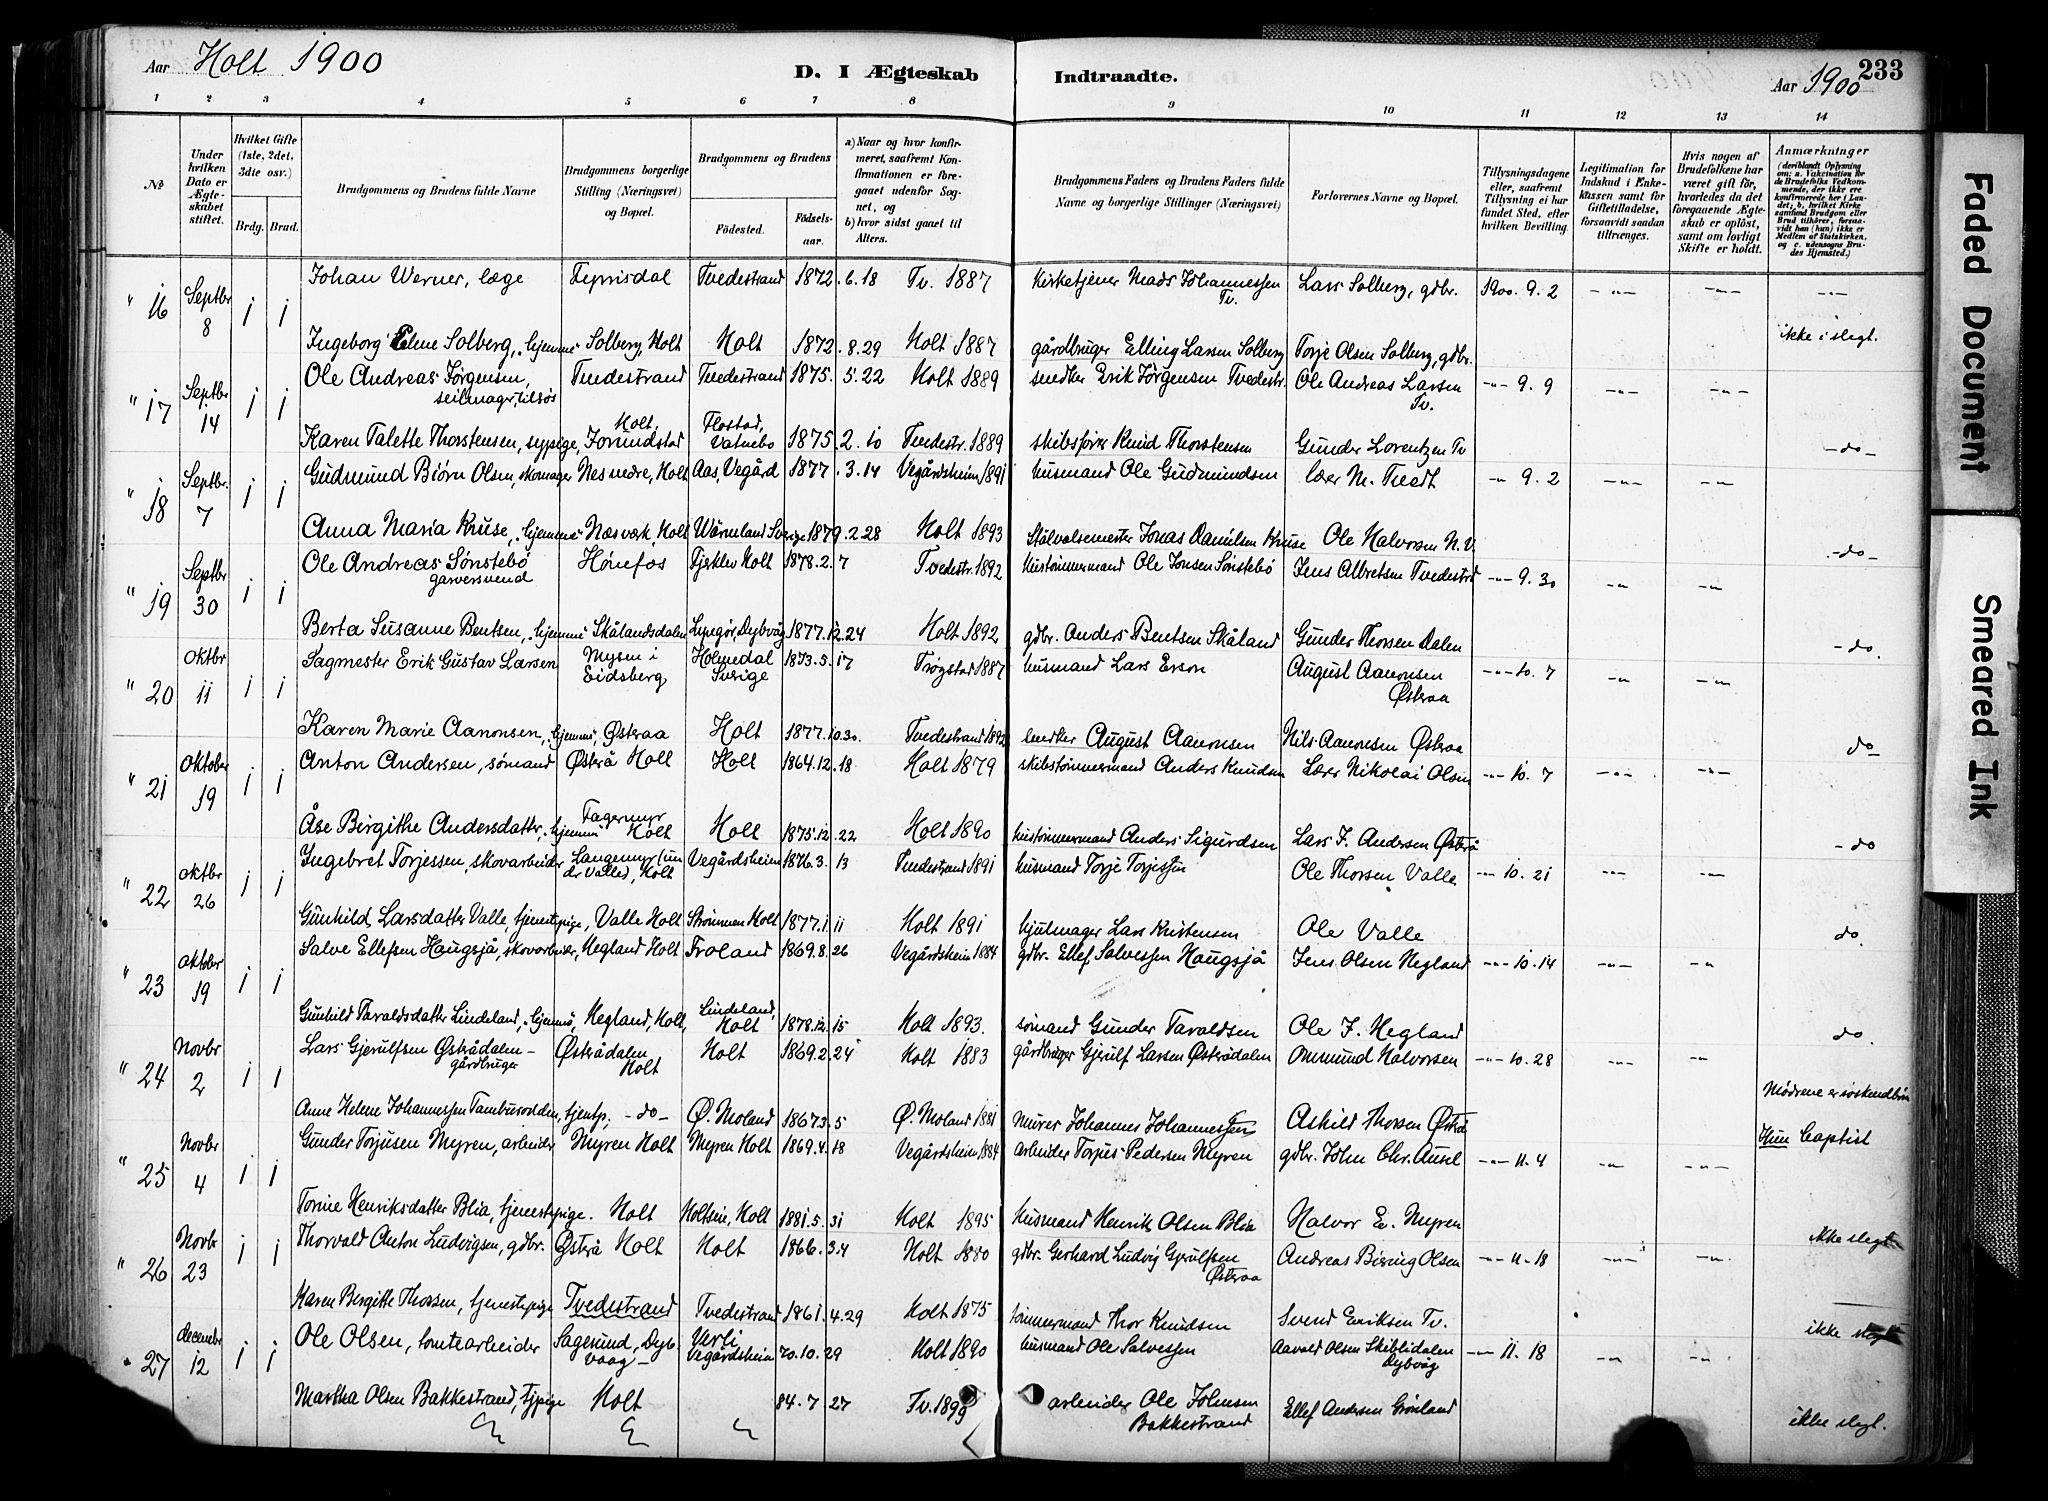 Aar Holt 1900
D. I Ægteskab Indtraadte.
Aar 1900
233
1 2 3 4 5 6 7 8 9 10 11 12 13 14
No
Under hvilken Dato er Ægteskabet stiftet.
Hvilket Gifte (1ste, 2det, 3die osv.)
Brdg. Brud.
Brudgommens og Brudens fulde Navne
Brudgommens borgerlige Stilling (Næringsvei) og Bopæl.
Brudgommens og Brudens
Fødested. Fødselsaar.
a) Naar og hvor konfirmeret, saafremt Konfirmationen er foregaaet udenfor Sognet, og
b) hvor sidst gaaet til Alters.
Brudgommens Faders og Brudens Faders fulde Navne og borgerlige Stillinger (Næringsvei)
Forlovernes Navne og Bopæl.
Tillysningsdagene eller, saafremt Tillysning ei har fundet Sted, efter hvilken Bevilling.
Legitimation for Indskud i Enkekassen samt for Giftetilladelse, forsaavidt saadan tiltrænges.
Hvis nogen af Brudefolkene har været gift før, hvorledes da det foregaaende Ægteskab er opløst, samt om lovligt Skifte er holdt.
Anmærkninger (deriblandt Oplysning om: a. Vakcination for de Brudefolks Vedkommende, der ikke ere konfirmerede her i Landet; b. hvilket Kirkesamfund Brudgom eller Brud tilhører, forsaavidt han (hun) ikke er Medlem af Statskirken, og c. udensogns Brudes Hjemsted.)
" 16 Septbr 8 1 1 Johan Werner, læge Tveдestrand 1872.6.18 Tv. 1887 kirketjener Mads Johannessen Tv. Lars Solberg, gdbr. 1900. 9. 2 -"- -"- -"-
Ingeborg Elene Solberg, "hjemme" Solberg, Holt Holt 1872.8.29 Holt 1887 gårdbruger Elling Larsen Solberg Torje Olsen Solberg, gdbr. ikke i slegt.
" 17 Septbr 14 1 1 Ole Andreas Jörgensen, seilmager, tilsøs Tvedestrand Tvedestrand 1875.5.22 Holt 1889 snedker Erik Jörgensen Tvedestr. Ole Andreas Larsen Tv. -"- 9. 9 -"- -"-
Karen Talette Thorstensen, sypige, Holt, Flostad, Vatnebo 1875.2.10 Tvedestr. 1889 skibsfører Knud Thorstensen Gunder Lorentzen Tv -do-
" 18 Septbr. 7 1 1 Gudmund Biörn Olsen, skomager Nes nedre, Holt Aas, Vegård 1877.3.14 Vegårdsheim 1891 husmand Ole Gudmundsen lærer M. Tvedt -"- 9. 2 -"- -"-
Anna Maria Kruse, "hjemme" Næsverk, Holt Värmland Sverige 1879.2.28 Holt 1893 Stålvalsemester Jonas Danielsen Kruse Ole Halvorsen N.V. -do-
" 19 Septbr 30 1 1 Ole Andreas Sønstebø garversvend Hønefos Fjeklev Holt 1878.2.7 Tvedestr. 1892 hustømmermand Ole Jonsen Sønstebø Jens Albretsen Tvedestrd -"- 9. 30 -"- -"-
Berta Susanne Bentsen, "hjemme" Skålandsdalen Lyngör, Dybvåg 1877.12.24 Holt 1892 gdbr. Anders Bentsen Skåland Gunder Thorsen Dalen -do.
" 20 Oktbr 11 1 1 Sagmester Erik Gustav Larsen Mysen i Eidsberg Holmedal Sverige 1873.5.17 Trøgstad 1887 husmand Lars Erson August Aanonsen Østeraa -"- 10. 7 -"- -"-
Karen Marie Aanonsen, "hjemme", Østeraa Holt 1877.10.30. Tvedestrand 1892 snedker August Aanonsen Nils Aanonsen Østeraa do
" 21 Oktober 19 1 1 Anton Andersen, sømand Østrå Holt Holt 1864.12.18 Holt 1879 skibstømmermand Anders Knudsen Lærer Nikolai Olsen -"- 10. 7 -"- -"-
Åse Birgithe Andersdatter, "hjemme" Fagermyr Holt Holt 1875.12.22 Holt 1890 hustømmermand Anders Sigurdsen Lars J. Andersen Østrå -do
" 22 Oktbr 26 1 1 Ingebret Torjessen, skovarbeider Langemyr (under Valle), Holt Vegårdsheim 1876.3.13 Tvedestrand 1891 husmand Torje Torjessen Ole Thorsen Valle -"- 10. 21 -"- -"-
Gunhild Larsdatter Valle, tjenestepige, Valle Holt Strömmen Holt 1877.1.11 Holt 1891 hjulmager Lars Kristensen Ole Valle do.
" 23 Oktober 19 1 1 Salve Ellefsen Haugsjå, skovarbeider, Hegland Holt Froland 1869.8.26 Vegårdsheim 1884 gdbr. Ellef Salvessen Haugsjå Jens Olsen Hegland -"- 10. 14 -"- -"-
Gunhild Taraldsdatter Lindeland, "hjemme", Hegland, Holt, Lindeland, Holt 1878.12.15 Holt 1893. sømand Gunder Taraldsen Ole J. Hegland do.
" 24 Novbr 2 1 1 Lars Gjerulfsen Østrådalen - gårdbruger Østrådalen Holt Holt 1869.2.24 Holt 1883 gårdbruger Gjerulf Larsen Østerådalen Ommund Halvorsen -"- 10. 28 -"- -"-
Anne Helene Johannessen Tamburodden, tjentp. -do- Ø. Moland 1867.3.5 Ø. Moland 1881 murer Johannes Johannessen Askild Thorsen Østrå Mødrene er søskendbørn
" 25 Novbr 4 1 1 Gunder Torjusen Myren, arbeider Myren Holt Myren Holt 1869.4.18 Vegårdsheim 1884 arbeider Torjus Pedersen Myren gdbr. John Chr. Ausel -"- 11. 4 -"- -"- Hun baptist
Torine Henriksdatter Blia, tjenestepige. Holt Holtseie, Holt 1881.5.31 Holt 1895 husmand Henrik Olsen Blia Halvor E. Myren ikke slegt
" 26 Novbr 23 1 1 Thorvald Anton Ludvigsen, gdbr. Østrå Holt Holt 1866.3.4 Holt 1880 gdbr. Gerhard Ludvig Gjerulfsen Østeraa Andreas Böring Olsen -"- 11. 18 -"- -"-
Karen Birgitte Thorsen, tjenestepige Tvedestrand Tvedestrand 1861.4.29 Holt 1875 tømmermand Thor Knudsen Svend Eriksen Tv. ikke slegt
" 27 December 12 1 1 Ole Olsen, tomtearbeider Sagesund, Dybvaag - Verli Vegårdsheim 70.10.29 Holt 1890 husmand Ole Salvessen Aavald Olsen Skiblidalen Dybvåg -"- 11. 18 -"- -"-
Martha Olsen Bakkestrand, tjpige Holt 84.7 27 Tv. 1899 arbeider Ole Johnsen Bakkestrand Ellef Andersen Grönland ikke slegt.
Faded Document
Smeared Ink